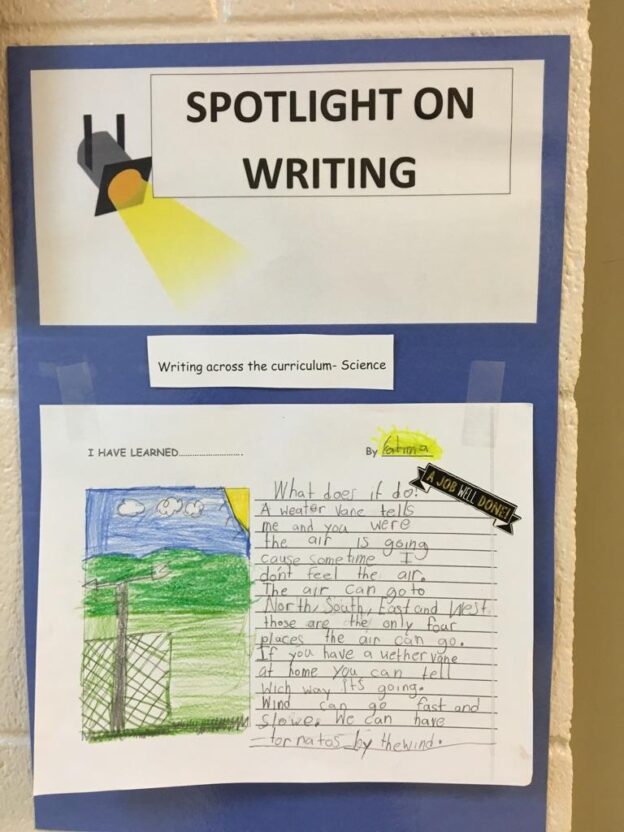 SPOTLIGHT ON
WRITING
Writing across the curriculum- Science
I HAVE LEARNED..........................
By Fatima
A JOB WELL DONE!
What does it do?
A weater vane tells
me and you were
the air is going
cause sometime I
don't feel the air.
The air can go to
North, South, East and West.
those are the only four
places the air can go.
If you have a wether vane
at home you can tell
wich way its going.
Wind can go fast and
slowe. We can have
tornatos by the wind.